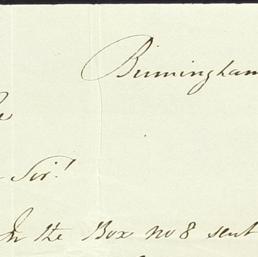 Birmingham
Sir!
In the Box no 8 sent